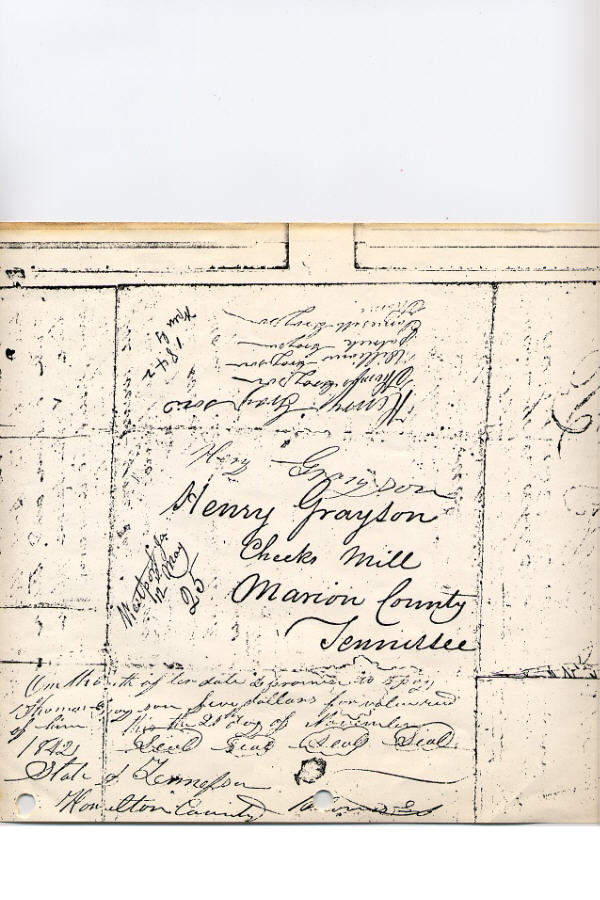 1842
Henry Grayson
Thomas Grayson
William Grayson
Patrick Grayson
Grayson
Heny Grayson
Henry Grayson
Cheeks Mill
Marion County
Tennessee
May
25
month after date I promise to pay
Thomas Grayson five dollars for value recd
of him this the 25th day of November
1842
Seal Seal Seal Seal
State of Tennessee
Hamilton County